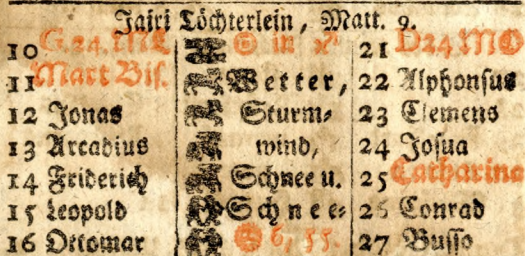 Jairi Töchterlein, Matt. 9.
10 G. 24. in 21 D24
11 Mart Bis. Wetter, 22 Alphonsus
12 Jonas Sturm- 23 Clemens
13 Arcadius wind, 24 Josua
14 Friderich Schnee u. 25 Catharina
15 Leopold Schnee- 26 Conrad
16 Ottomar 6, 55. 27 Busso